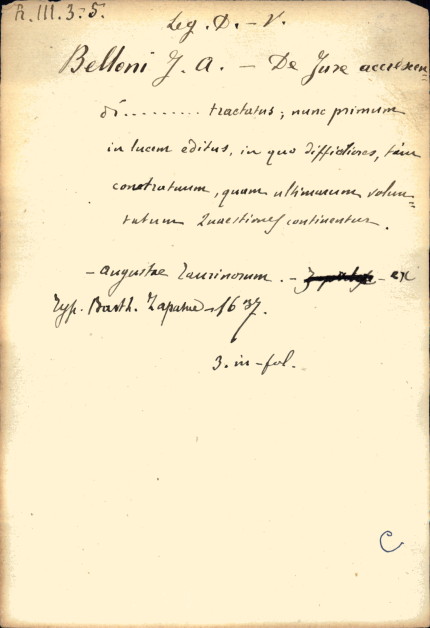 R.III.3.5.
Leg. D. - V.
Belloni J. A. - De Jure accrescen=
di ......... tractatus; nunc primum
in lucem editus, in quo difficiliores, tàm
contratuum, quam ultimarum volun=
tatum Quaestiones continentur.
- Augustae Taurinorum. - - ex
Typ. Barth. Zapatae - 1637.
3. in-fol.
C